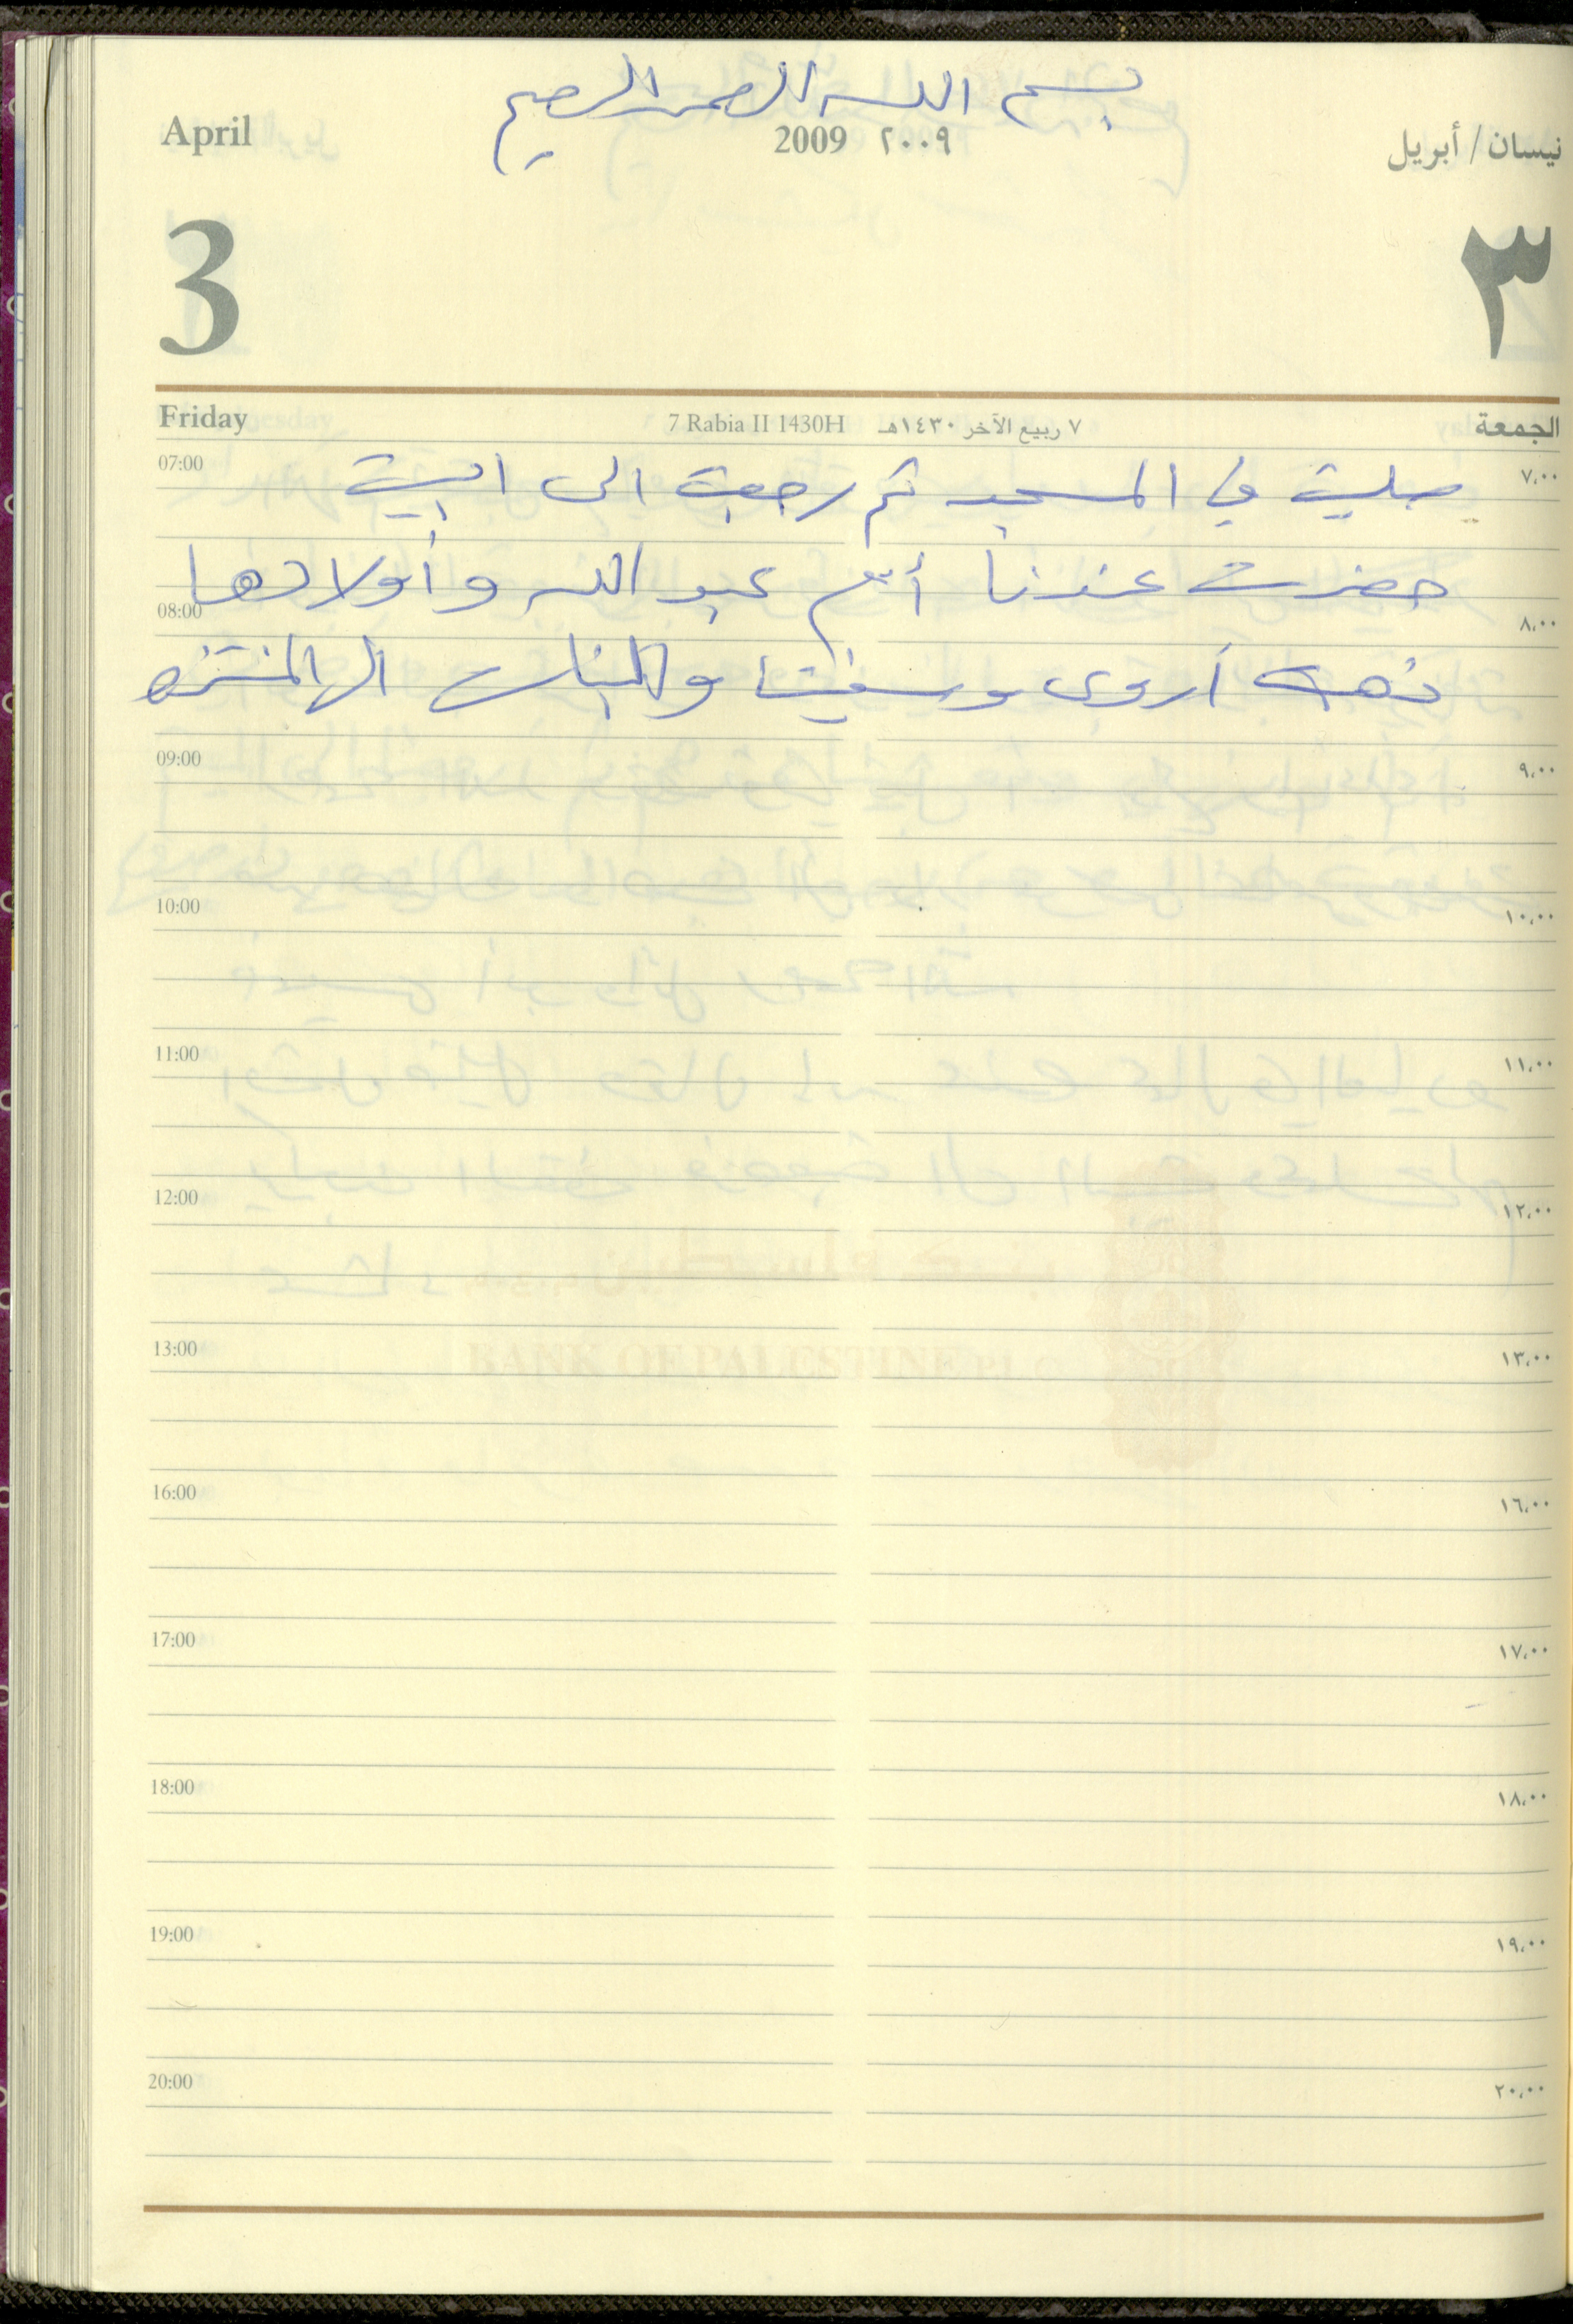 بسم الله الرحمن الرحيم
April 2009 ٢٠٠٩ نيسان / أبريل
3 ٣
Friday 7 Rabia II 1430H ٧ ربيع الآخر ١٤٣٠هـ الجمعة
07:00 صليت في المسجد ثم رجعت الى البيت ٧،٠٠
حضرت عندنا أم عبد الله وأولادها
08:00 ٨،٠٠
ذهبت أروى وسفيتا والبنات الى المنتزه
09:00 ٩،٠٠
10:00 ١٠،٠٠
11:00 ١١،٠٠
12:00 ١٢،٠٠
13:00 ١٣،٠٠
16:00 ١٦،٠٠
17:00 ١٧،٠٠
18:00 ١٨،٠٠
19:00 ١٩،٠٠
20:00 ٢٠،٠٠